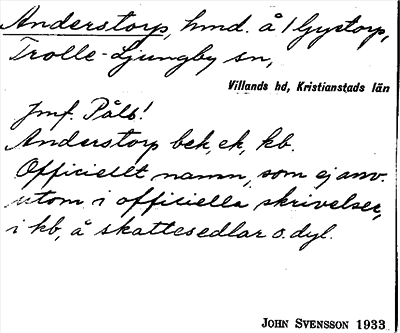 Anderstorp, hmd. å 1 Gystorp,
Trolle-Ljungby sn,
Villands hd, Kristianstads län
Jmf. Påls!
Anderstorp bek, ek, kb.
Officiellt namn, som ej anv.
utom i officiella skrivelser,
i kb, å skattesedlar o. dyl.
JOHN SVENSSON 1933